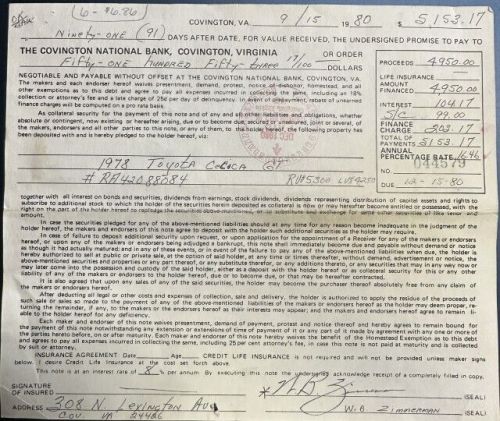 (6-$6.86)
COVINGTON, VA. 9/15 1980 $ 5,153.17
Ninety-one (91) DAYS AFTER DATE, FOR VALUE RECEIVED, THE UNDERSIGNED PROMISE TO PAY TO
THE COVINGTON NATIONAL BANK, COVINGTON, VIRGINIA OR ORDER
Fifty-one hundred Fifty-three 17/100 DOLLARS
NEGOTIABLE AND PAYABLE WITHOUT OFFSET AT THE COVINGTON NATIONAL BANK, COVINGTON, VA.
The makers and each endorser hereof waives presentment, demand, protest, notice of dishonor, homestead, and all
other exemptions as to this debt and agree to pay all expenses incurred in collecting the same, including an 18%
collection or attorney's fee and a late charge of 25¢ per day of delinquency. In event of prepayment, rebates of unearned
finance charges will be computed on a pro rata basis.
As collateral security for the payment of this note and any and all other liabilities and obligations, whether
absolute or contingent, now existing or hereafter arising, due or to become due, secured or unsecured, joint or several, of
the makers, endorsers and all other parties to this note, or any of them, to the holder hereof, the following property has
been deposited with and is hereby pledged to the holder hereof, viz:
PROCEEDS 4950.00
LIFE INSURANCE
AMOUNT
FINANCED 4,950.00
INTEREST 104.17
S/C 99.00
FINANCE
CHARGE 203.17
TOTAL OF
PAYMENTS 5153.17
ANNUAL
PERCENTAGE RATE 16.46
NO. 044579
DUE 12-15-80
1978 Toyota Celica GT
# RA42088084 R/#5300 LV#4250
together with all interest on bonds and securities, dividends from earnings, stock dividends, dividends representing distribution of capital assets and rights to
subscribe to additional stock to which the holder of the securities herein deposited as collateral is now or may hereafter become entitled or possessed, with the
right on the part of the holder hereof to repledge the securities above mentioned, or to substitute and exchange for same other securities of like tenor and
amount.
In case the securities pledged for any of the above-mentioned liabilities should at any time for any reason become inadequate in the judgment of the
holder hereof, the makers and endorsers of this note agree to deposit with the holder such additional securities as the holder may require.
In case of failure to deposit additional security upon request, or upon application for the appointment of a Receiver for any of the makers or endorsers
hereof, or upon any of the makers or endorsers being adjudged a bankrupt, this note shall immediately become due and payable without demand or notice
It is also agreed that upon any sales of any of the said securities, the holder may become the purchaser thereof absolutely free from any claim of
the makers or endorsers hereof.
After deducting all legal or other costs and expenses of collection, sale and delivery, the holder is authorized to apply the residue of the proceeds of
such sale or sales so made to the payment of any of the above-mentioned liabilities of the makers or endorsers hereof as the holder may deem proper, re-
turning the remainder, if any, to the makers or endorsers as their interests may appear; and the makers and endorsers hereof agree to remain li-
able to the holder hereof for any deficiency.
Each maker and endorser of this note waives presentment, demand, payment, protest and notice thereof and hereby agrees to remain bound for
the payment of this note notwithstanding any extension or extensions of time of payment of it or any part of it made by agreement with any one or more of
the parties hereto before, on or after maturity. Each maker and endorser of this note hereby waives the benefit of the Homestead Exemption as to this debt
and agrees to pay all expenses incurred in collecting the same, including 25 per cent attorney's fee, in case this note is not paid at maturity and is collected
by suit or attorney.
INSURANCE AGREEMENT Date Age CREDIT LIFE INSURANCE is not required and will not be provided unless maker signs
below. I desire Credit Life Insurance at the cost set forth above.
This note is at an interest rate of 8 % per annum. By executing this note the undersigned acknowledge receipt of a completely filled in copy.
SIGNATURE
OF INSURED (SEAL)
W.B. ZIMMERMAN
ADDRESS 308 N Lexington Ave (SEAL)
COV VA 24426